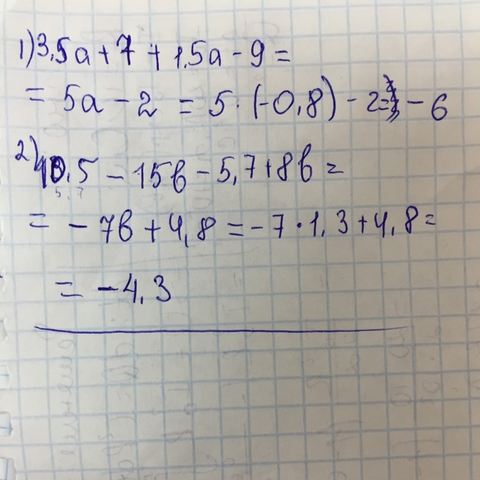 1) 3,5a + 7 + 1,5a - 9 =
= 5a - 2 = 5 · (-0,8) - 2 = - 6
2) 10,5 - 15b - 5,7 + 8b =
5.7
= - 7b + 4,8 = - 7 · 1,3 + 4,8 =
= - 4,3